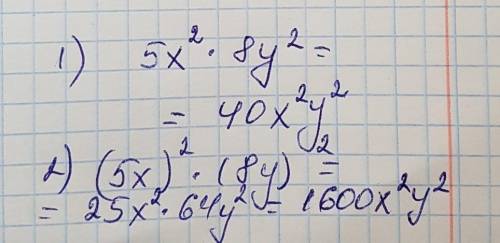 1) 5x²·8y²=
= 40x²y²
2) (5x)²·(8y)²=
= 25x²·64y² = 1600x²y²